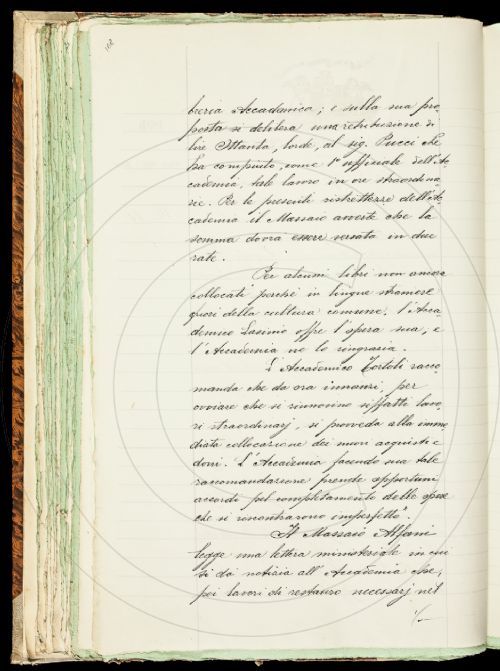 108
breria Accademica; e sulla sua pro-
posta si delibera una retribuzione di
lire Ottanta, lorde, al sig. Pucci che
ha compiuto, come 1º uffiziale dell'Ac
cademia, tale lavoro in ore straordina-
rie. Per le presenti ristrettezze dell'Ac
cademia il Massaio avverte che la
somma dovrà essere versata in due
rate.
Per alcuni libri non ancora
collocati perchè in lingue straniere
fuori della cultura comune, l'Acca-
demico Lasinio offre l'opera sua, e
l'Accademia ne lo ringrazia.
L'Accademico Tortoli racco-
manda che da ora innanzi, per
ovviare che si rinnovino siffatti lavo-
ri straordinarj, si proveda alla imme
diata collocazione dei nuovi acquisti e
doni. L'Accademia facendo sua tale
racomandazione prende opportuni
accordi pel completamento delle opere
che si riscontrarono imperfette.
Il Massaio Alfani
legge una lettera ministeriale in cui
si dà notizia all'Accademia che,
pei lavori di restauro necessarj nel
./.